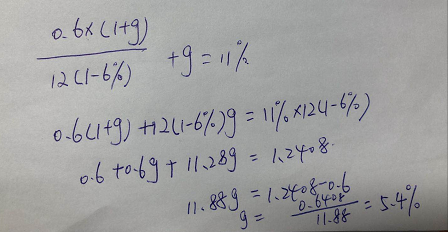 0.6×(1+g)
12(1-6%) +g=11%
0.6(1+g)+12(1-6%)g=11%×12(1-6%)
0.6+0.6g+11.28g=1.2408.
11.88g=1.2408-0.6
g= 0.6408 / 11.88 =5.4%